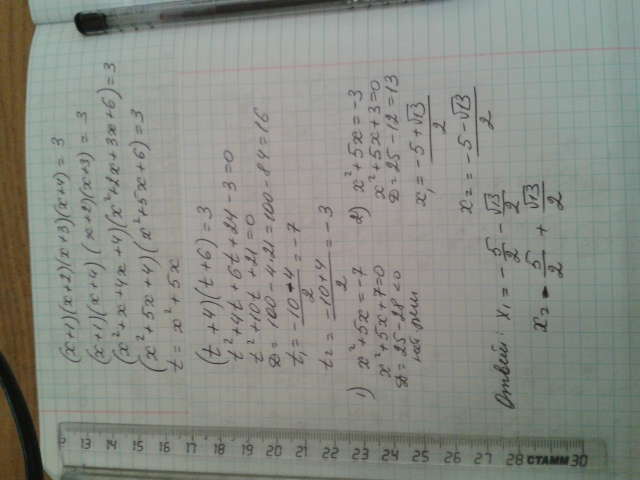 (x+1)(x+2)(x+3)(x+4) = 3
(x+1)(x+4)(x+2)(x+3) = 3
(x²+x+4x+4)(x²+2x+3x+6) = 3
(x²+5x+4)(x²+5x+6) = 3
t = x²+5x
(t+4)(t+6) = 3
t²+4t+6t+24-3=0
t²+10t+21=0
D = 100-4·21=100-84=16
t₁ = -10-4/2 = -7
t₂ = -10+4/2 = -3
1) x²+5x=-7
x²+5x+7=0
D=25-28<0
2) x²+5x=-3
x²+5x+3=0
D=25-12=13
x₁ = -5+√13/2
x₂ = -5-√13/2
Ответ: x₁ = -5/2 - √13/2
x₂ = -5/2 + √13/2
13 14 15 16 17 18 19 20 21 22 23 24 25 26 27 28 СТАММ 30